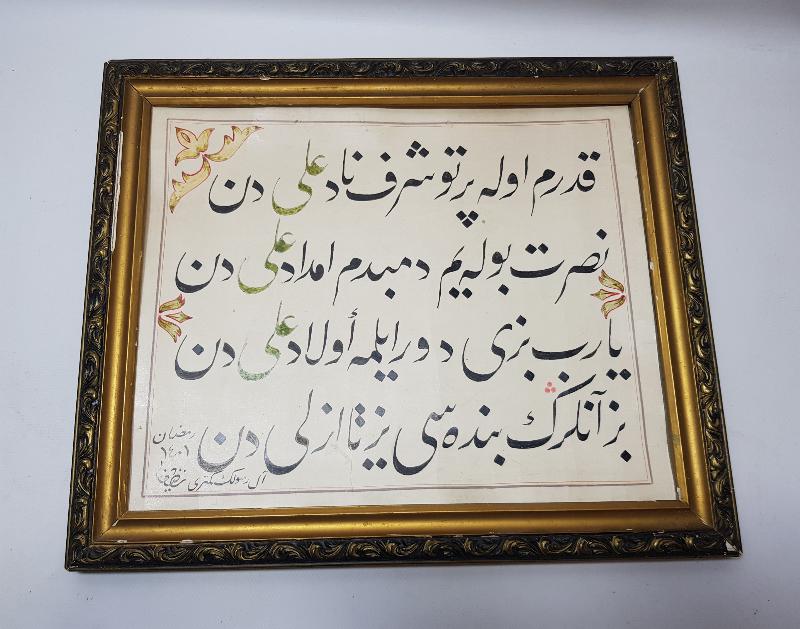 قدرم اوله پرتو شرف ناد علی دن
نصرت بولیم دمبدم امداد علی دن
یارب بزی دور ایلمه أولاد علی دن
بز آنلرڭ بنده سی یز تا ازلی دن
رمضان
١٤٠١
آل رسولك كمتری